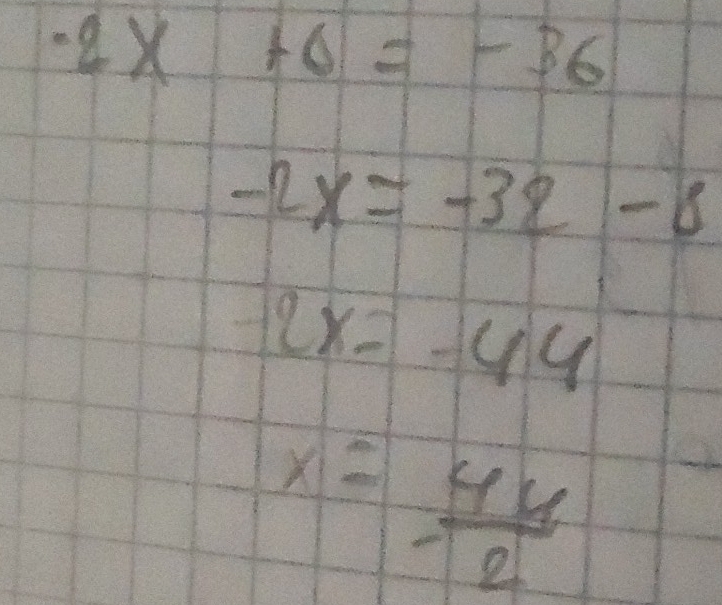 -2x +6 = -36
-2x = -32 - 8
-2x = -44
x = -44/2